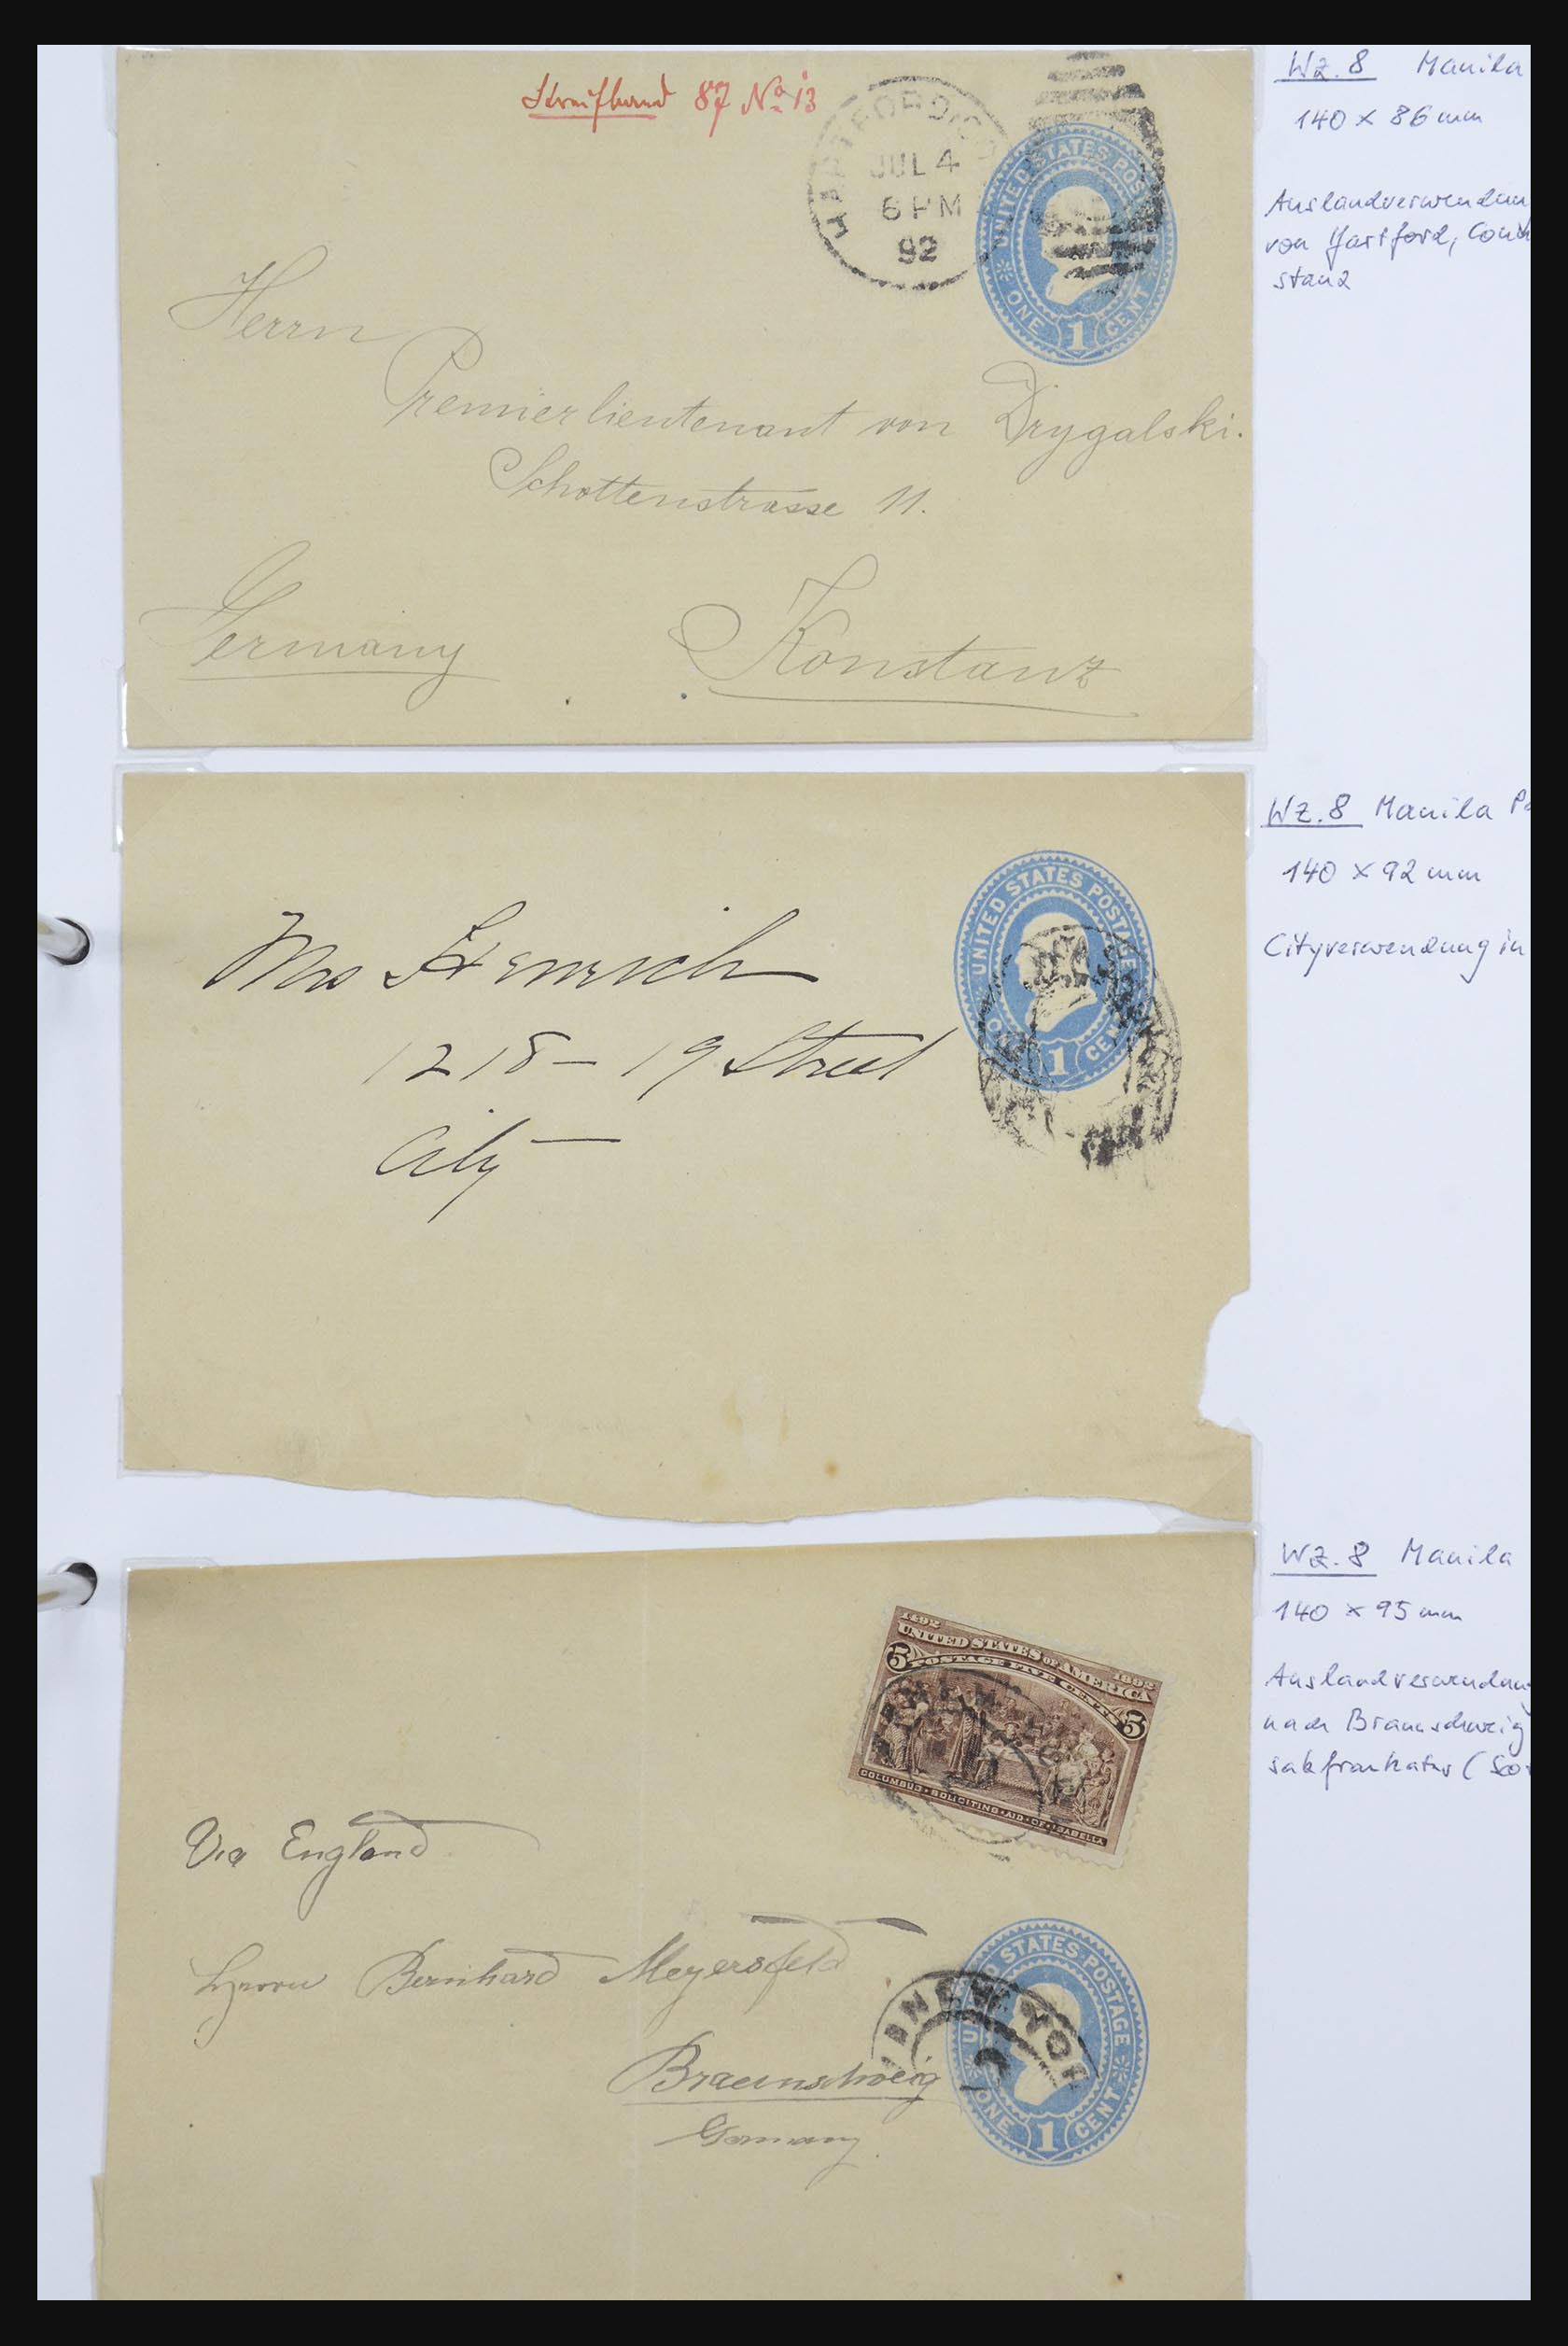 Streifband 87 No 13
HARTFORD.CT
JUL 4
6 PM
92
UNITED STATES POS
ONE 1 CENT
Herrn
Premierlieutenant von Drygalski.
Schottenstrasse 11.
Germany
Konstanz
WZ. 8 Manila
140 x 86 mm
Auslandverwendun
von Hartford, Conn
stanz
UNITED STATES POSTAGE
ONE 1 CENT
Mrs Henrich
1218 - 19 Street
City
WZ. 8 Manila Pa
140 x 92 mm
Cityverwendung in
1492 1892
UNITED STATES OF AMERICA
5 POSTAGE FIVE CENTS 5
COLUMBUS · SOLICITING · AID · OF · ISABELLA
Via England
Herrn Bernhard Meyersfeld
Braunschweig
Germany
NEW YOR
STATES POSTAGE
ONE 1 CENT
WZ. 8 Manila
140 x 95 mm
Auslandverwendung
nach Braunschweig
satzfrankatur (Sco